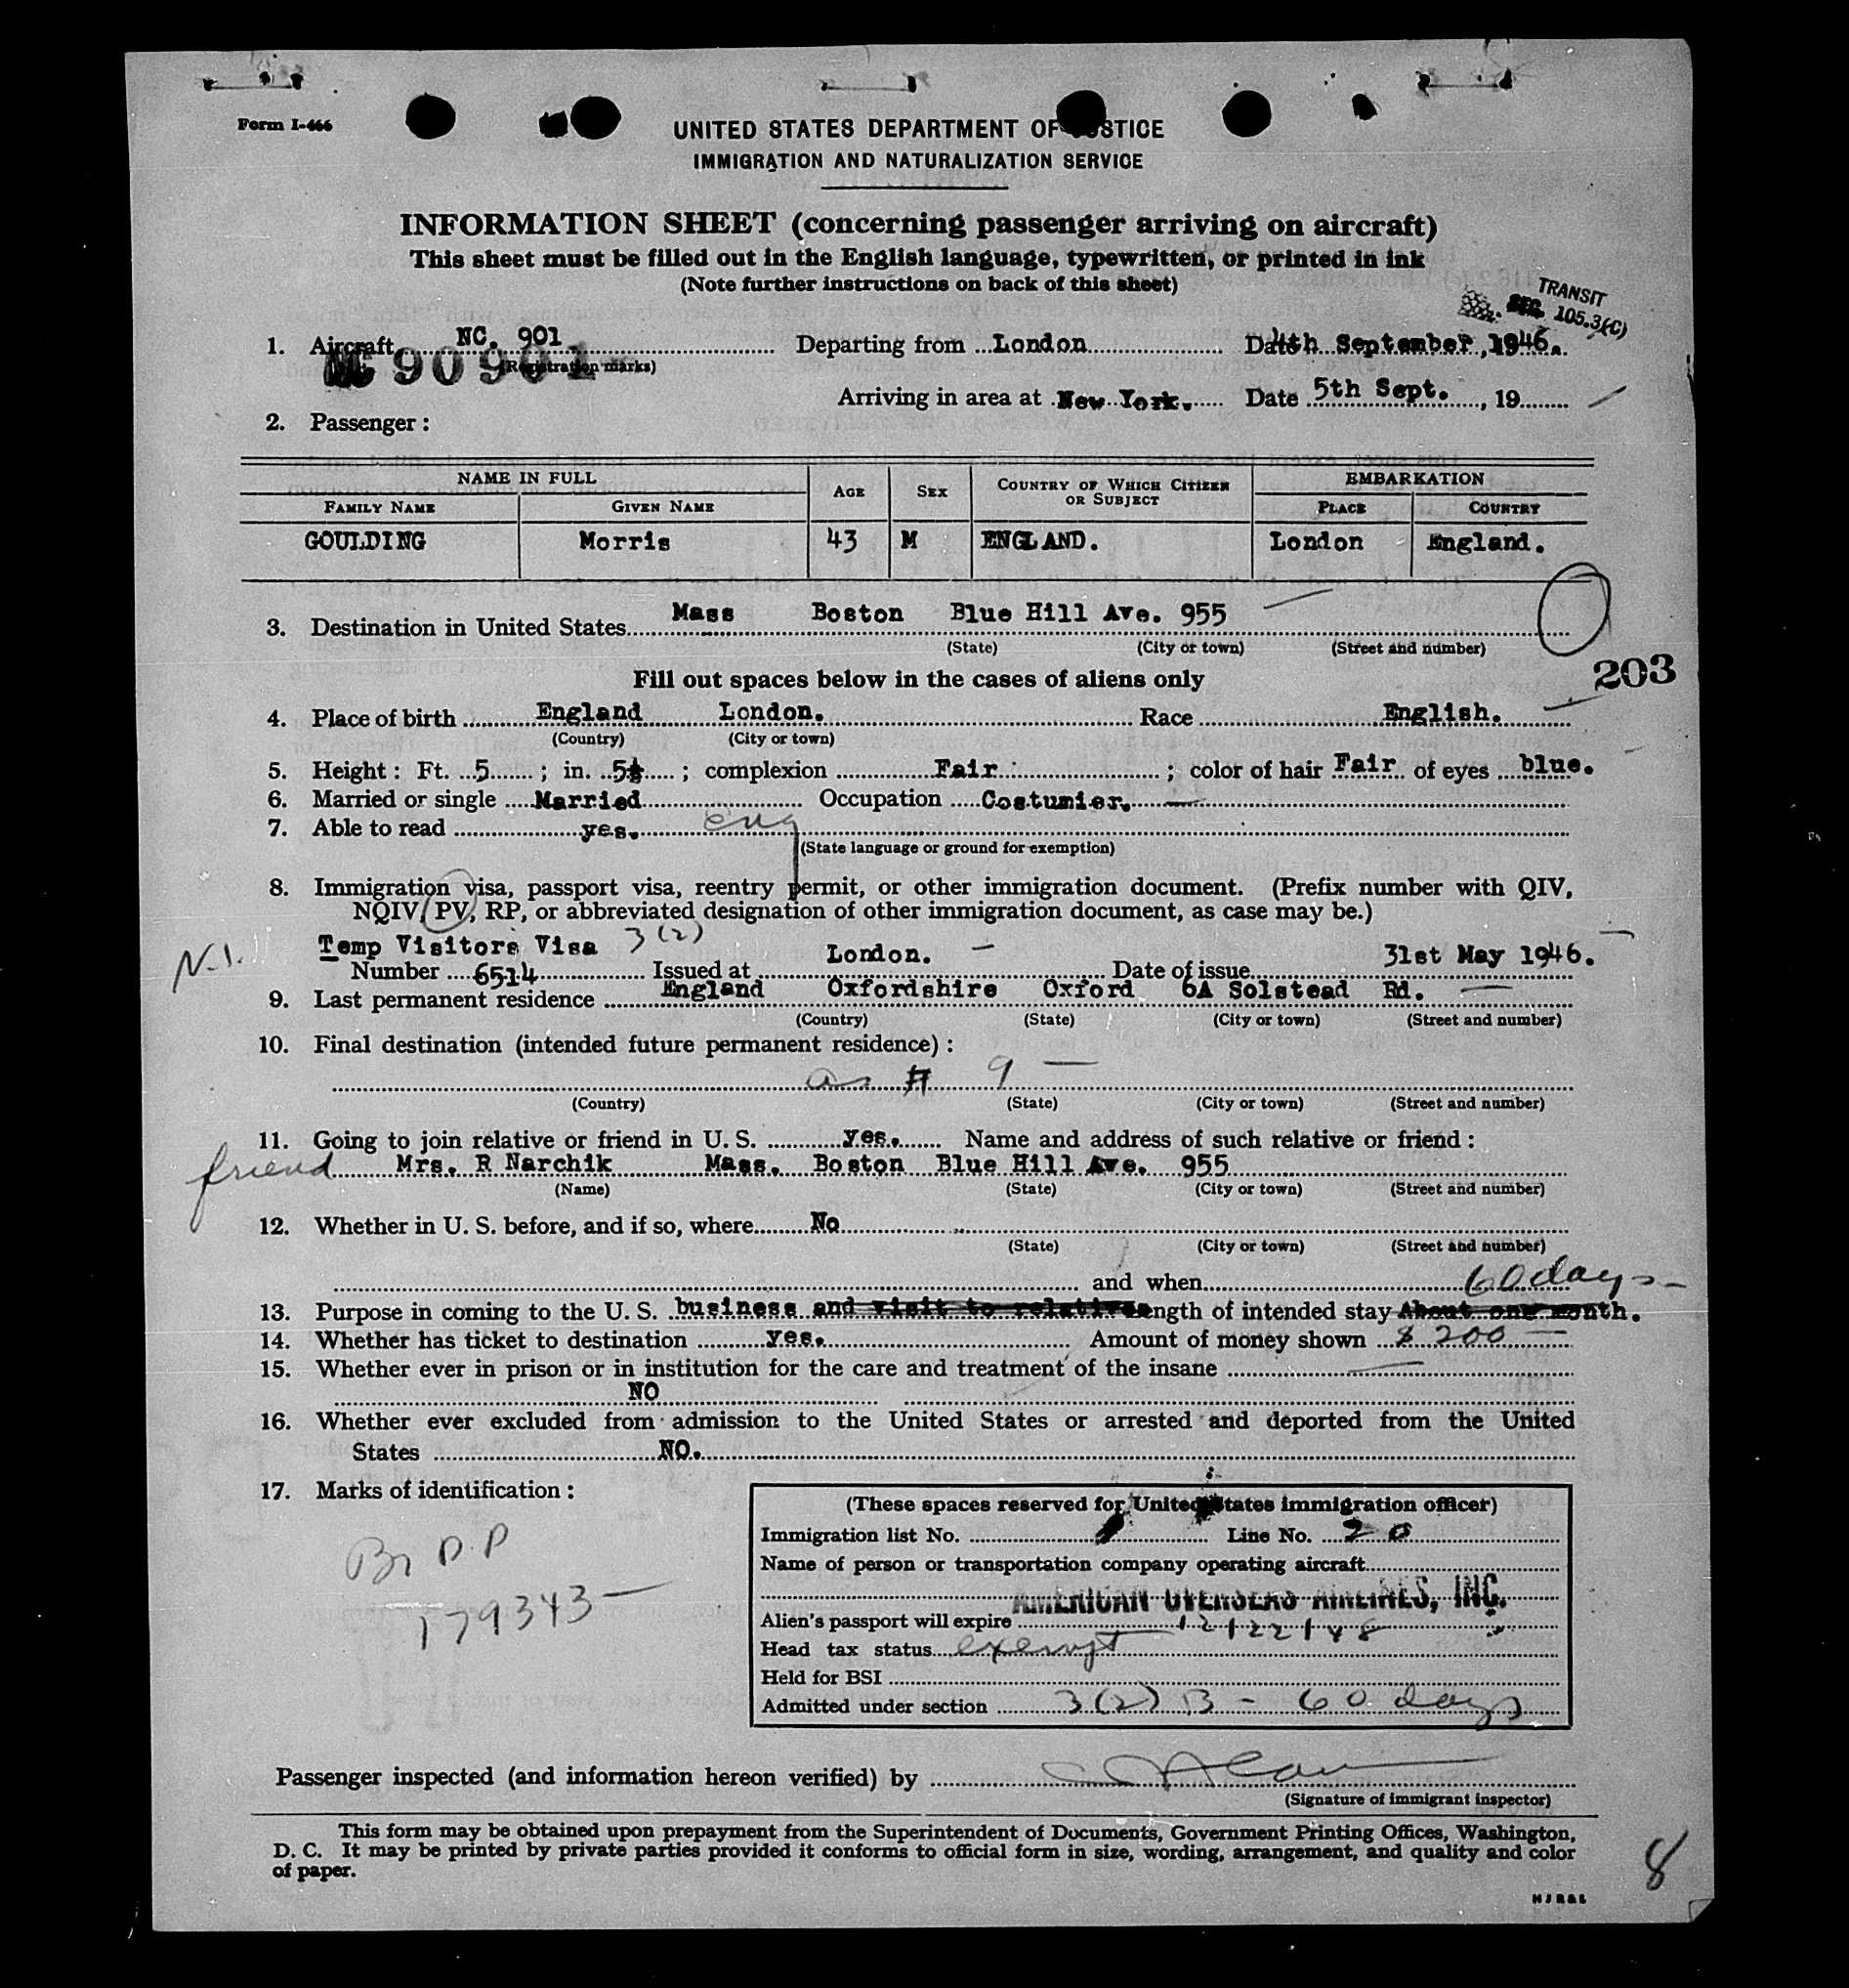 Form I-466
UNITED STATES DEPARTMENT OF JUSTICE
IMMIGRATION AND NATURALIZATION SERVICE
INFORMATION SHEET (concerning passenger arriving on aircraft)
This sheet must be filled out in the English language, typewritten, or printed in ink
(Note further instructions on back of this sheet)
TRANSIT
SEC. 105.3(C)
1. Aircraft NC. 901 Departing from London Date 4th September, 1946.
NC 90901 (Registration marks)
Arriving in area at New York. Date 5th Sept., 19
2. Passenger:
NAME IN FULL AGE SEX COUNTRY OF WHICH CITIZEN OR SUBJECT EMBARKATION
FAMILY NAME GIVEN NAME PLACE COUNTRY
GOULDING Morris 43 M ENGLAND. London England.
3. Destination in United States Mass Boston Blue Hill Ave. 955
(State) (City or town) (Street and number)
203
Fill out spaces below in the cases of aliens only
4. Place of birth England London. Race English.
(Country) (City or town)
5. Height: Ft. 5; in. 5½; complexion Fair; color of hair Fair of eyes blue.
6. Married or single Married Occupation Costumier.
7. Able to read yes. eng
(State language or ground for exemption)
8. Immigration visa, passport visa, reentry permit, or other immigration document. (Prefix number with QIV,
NQIV, PV, RP, or abbreviated designation of other immigration document, as case may be.)
N.I. Temp Visitors Visa 3(2)
Number 6514 Issued at London. Date of issue 31st May 1946.
9. Last permanent residence England Oxfordshire Oxford 6A Solstead Rd.
(Country) (State) (City or town) (Street and number)
10. Final destination (intended future permanent residence):
as # 9
(Country) (State) (City or town) (Street and number)
11. Going to join relative or friend in U. S. yes. Name and address of such relative or friend:
friend Mrs. R Narchik Mass. Boston Blue Hill Ave. 955
(Name) (State) (City or town) (Street and number)
12. Whether in U. S. before, and if so, where No
(State) (City or town) (Street and number)
and when 60 days
13. Purpose in coming to the U. S. business and visit to relatives Length of intended stay About one month.
14. Whether has ticket to destination yes. Amount of money shown $ 200
15. Whether ever in prison or in institution for the care and treatment of the insane
NO
16. Whether ever excluded from admission to the United States or arrested and deported from the United
States NO.
17. Marks of identification:
Br P.P
179343
(These spaces reserved for United States immigration officer)
Immigration list No. Line No. 20
Name of person or transportation company operating aircraft
AMERICAN OVERSEAS AIRLINES, INC.
Alien's passport will expire 12/22/48
Head tax status exempt
Held for BSI
Admitted under section 3(2) B - 60 days
Passenger inspected (and information hereon verified) by
(Signature of immigrant inspector)
This form may be obtained upon prepayment from the Superintendent of Documents, Government Printing Offices, Washington,
D. C. It may be printed by private parties provided it conforms to official form in size, wording, arrangement, and quality and color
of paper.
8